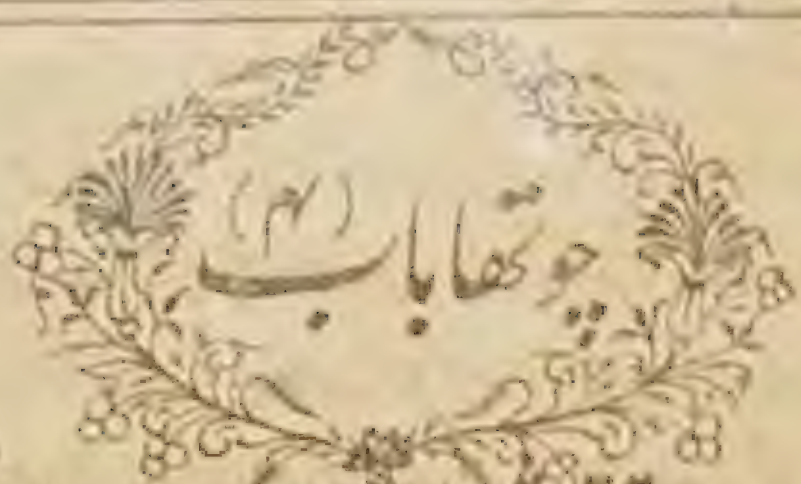 چوتھا باب (۴)